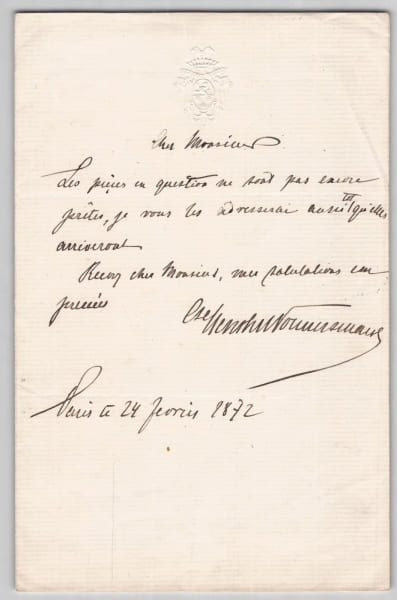 Cher Monsieur
Les pièces en question ne sont pas encore
prêtes, je vous les adresserai aussitôt qu'elles
arriveront
Recevez cher Monsieur, mes salutations em
pressées
Cte Henckel Donnersmarck
Paris le 24 fevrier 1872